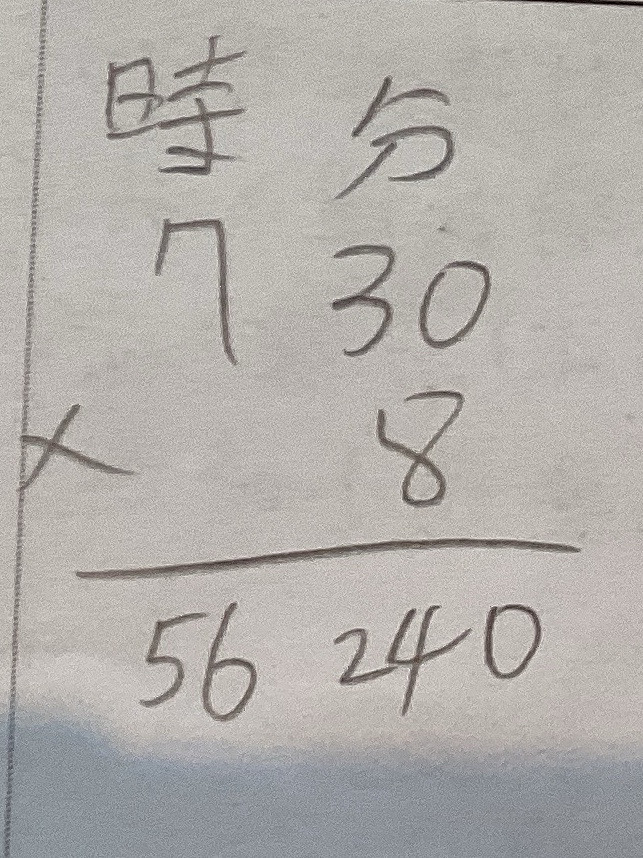 時 分
7 30
× 8
56 240